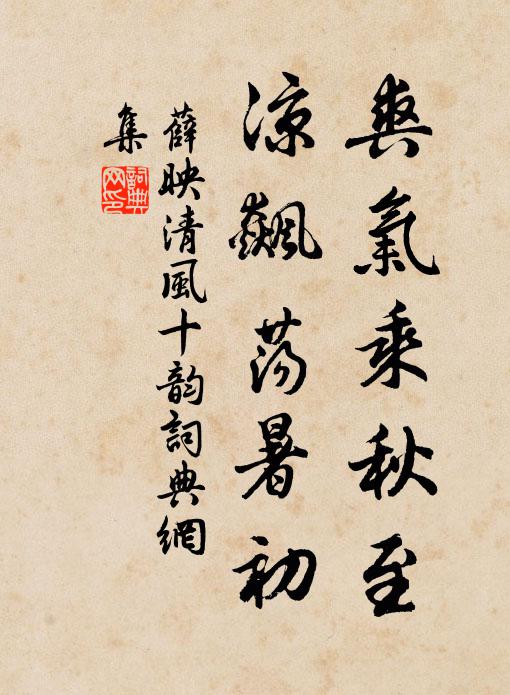 爽氣乘秋至
涼飆蕩暑初
薛映清風十韵詞典網
集
詞典
网印